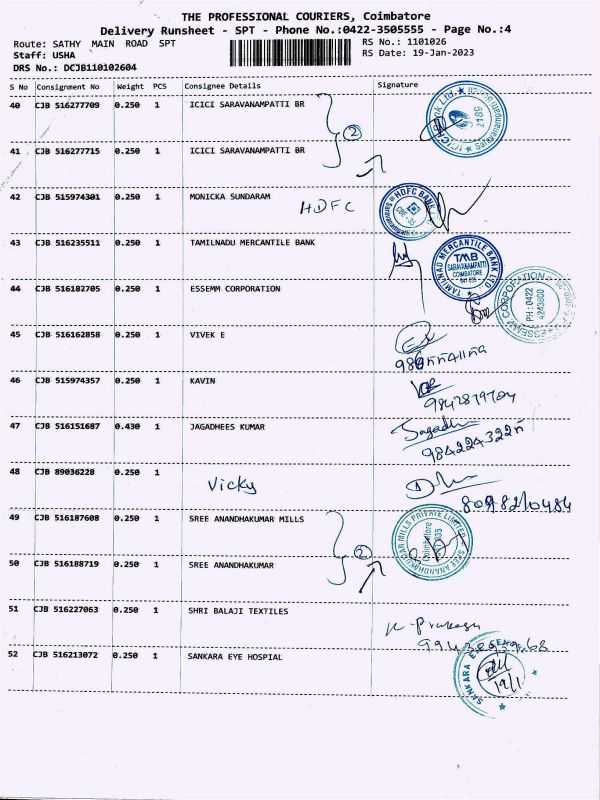 THE PROFESSIONAL COURIERS, Coimbatore
Delivery Runsheet - SPT - Phone No.:0422-3505555 - Page No.:4
Route: SATHY MAIN ROAD SPT
RS No.: 1101026
Staff: USHA
RS Date: 19-Jan-2023
DRS No.: DCJB110102604
S No Consignment No Weight PCS Consignee Details Signature
40 CJB 516277709 0.250 1 ICICI SARAVANAMPATTI BR
2
41 CJB 516277715 0.250 1 ICICI SARAVANAMPATTI BR
42 CJB 515974301 0.250 1 MONICKA SUNDARAM
HDFC
HDFC BANK
43 CJB 516235511 0.250 1 TAMILNADU MERCANTILE BANK
TAMILNAD MERCANTILE BANK LTD
TMB
SARAVANAMPATTI
COIMBATORE
641 035
44 CJB 516182705 0.250 1 ESSEMM CORPORATION
ESSEMM CORPORATION
PH: 0422
4243800
45 CJB 516162858 0.250 1 VIVEK E
46 CJB 515974357 0.250 1 KAVIN
47 CJB 516151687 0.430 1 JAGADHEES KUMAR
48 CJB 89036228 0.250 1
Vicky
49 CJB 516187608 0.250 1 SREE ANANDHAKUMAR MILLS
SREE ANANDHAKUMAR MILLS PRIVATE LIMITED
Coimbatore
2
50 CJB 516188719 0.250 1 SREE ANANDHAKUMAR
51 CJB 516227063 0.250 1 SHRI BALAJI TEXTILES
52 CJB 516213072 0.250 1 SANKARA EYE HOSPIAL
SANKARA EYE
19/1